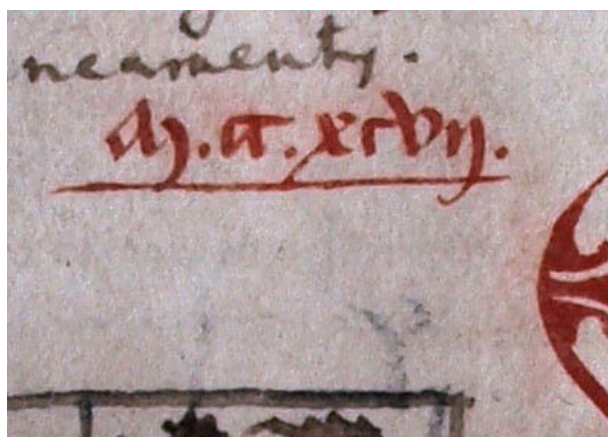 neamenty.
m.cc.xcvij.